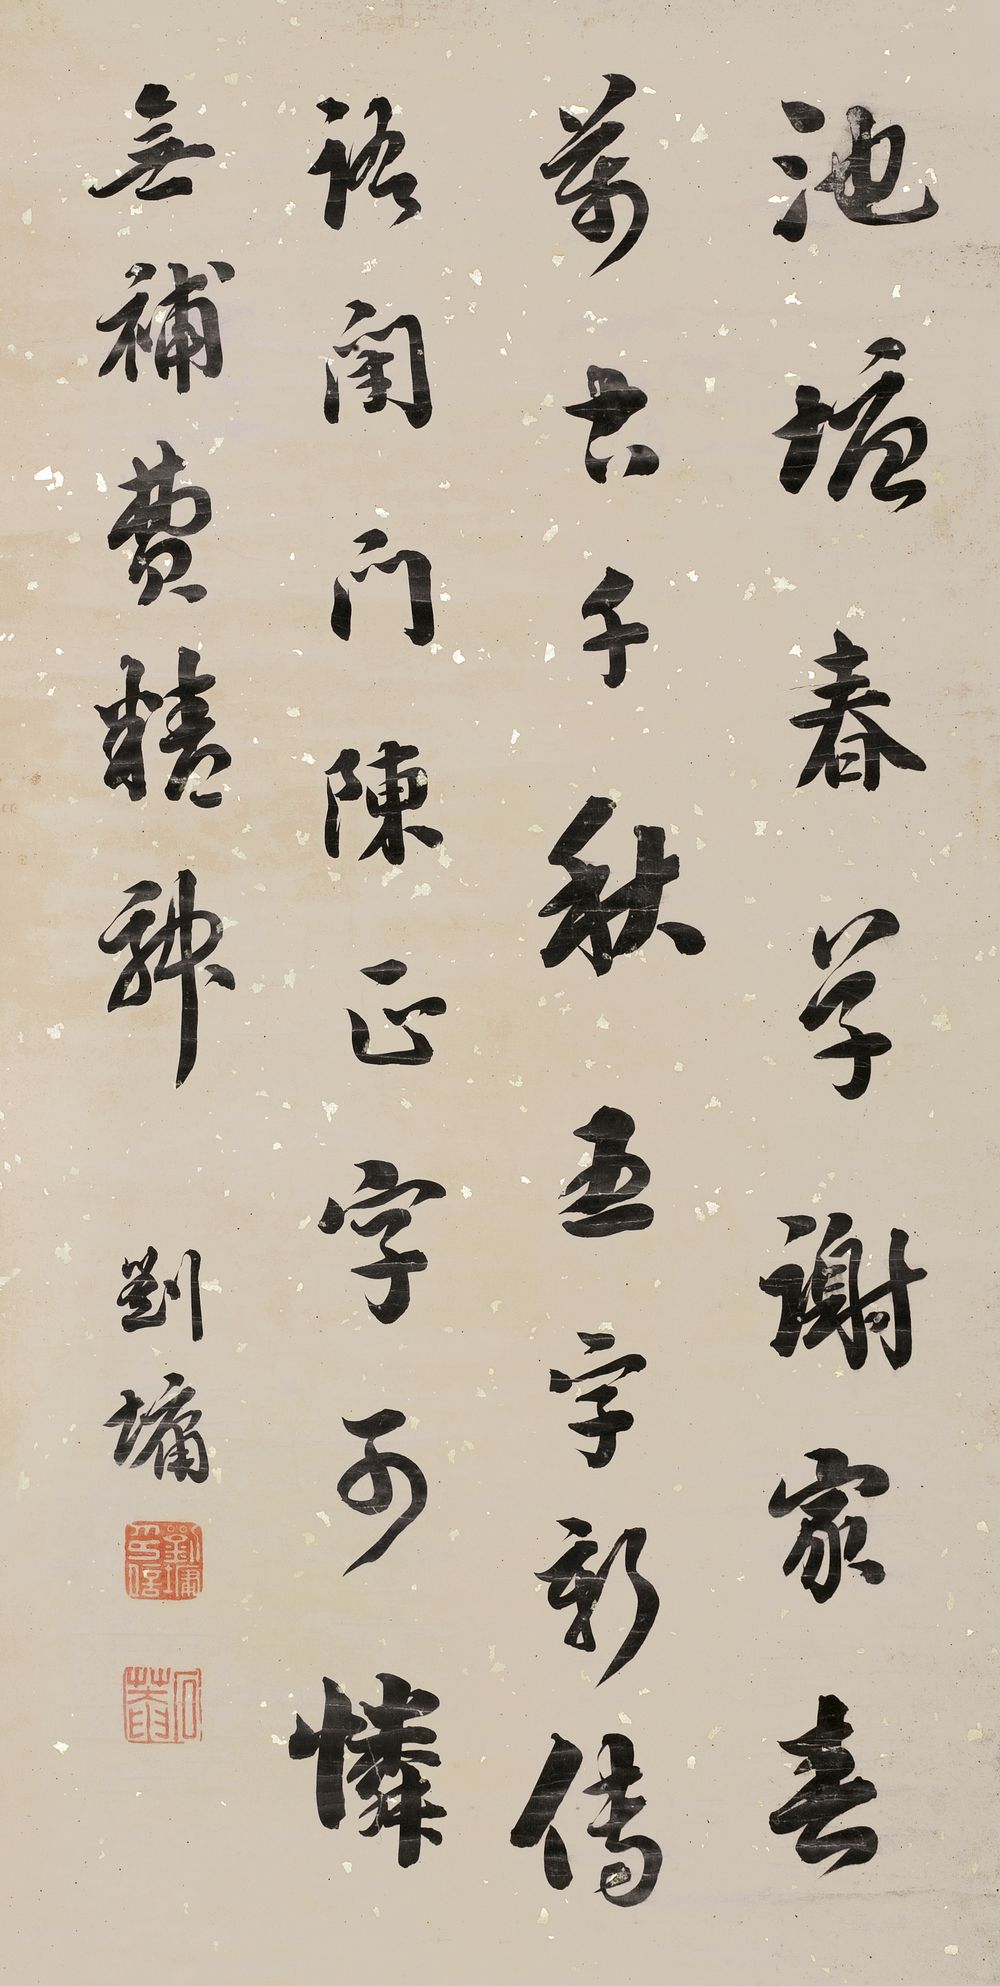 池塘春草謝家春
萬古千秋五字新傳
語閉門陳正字可憐
無補費精神
劉墉
劉墉印信
石菴